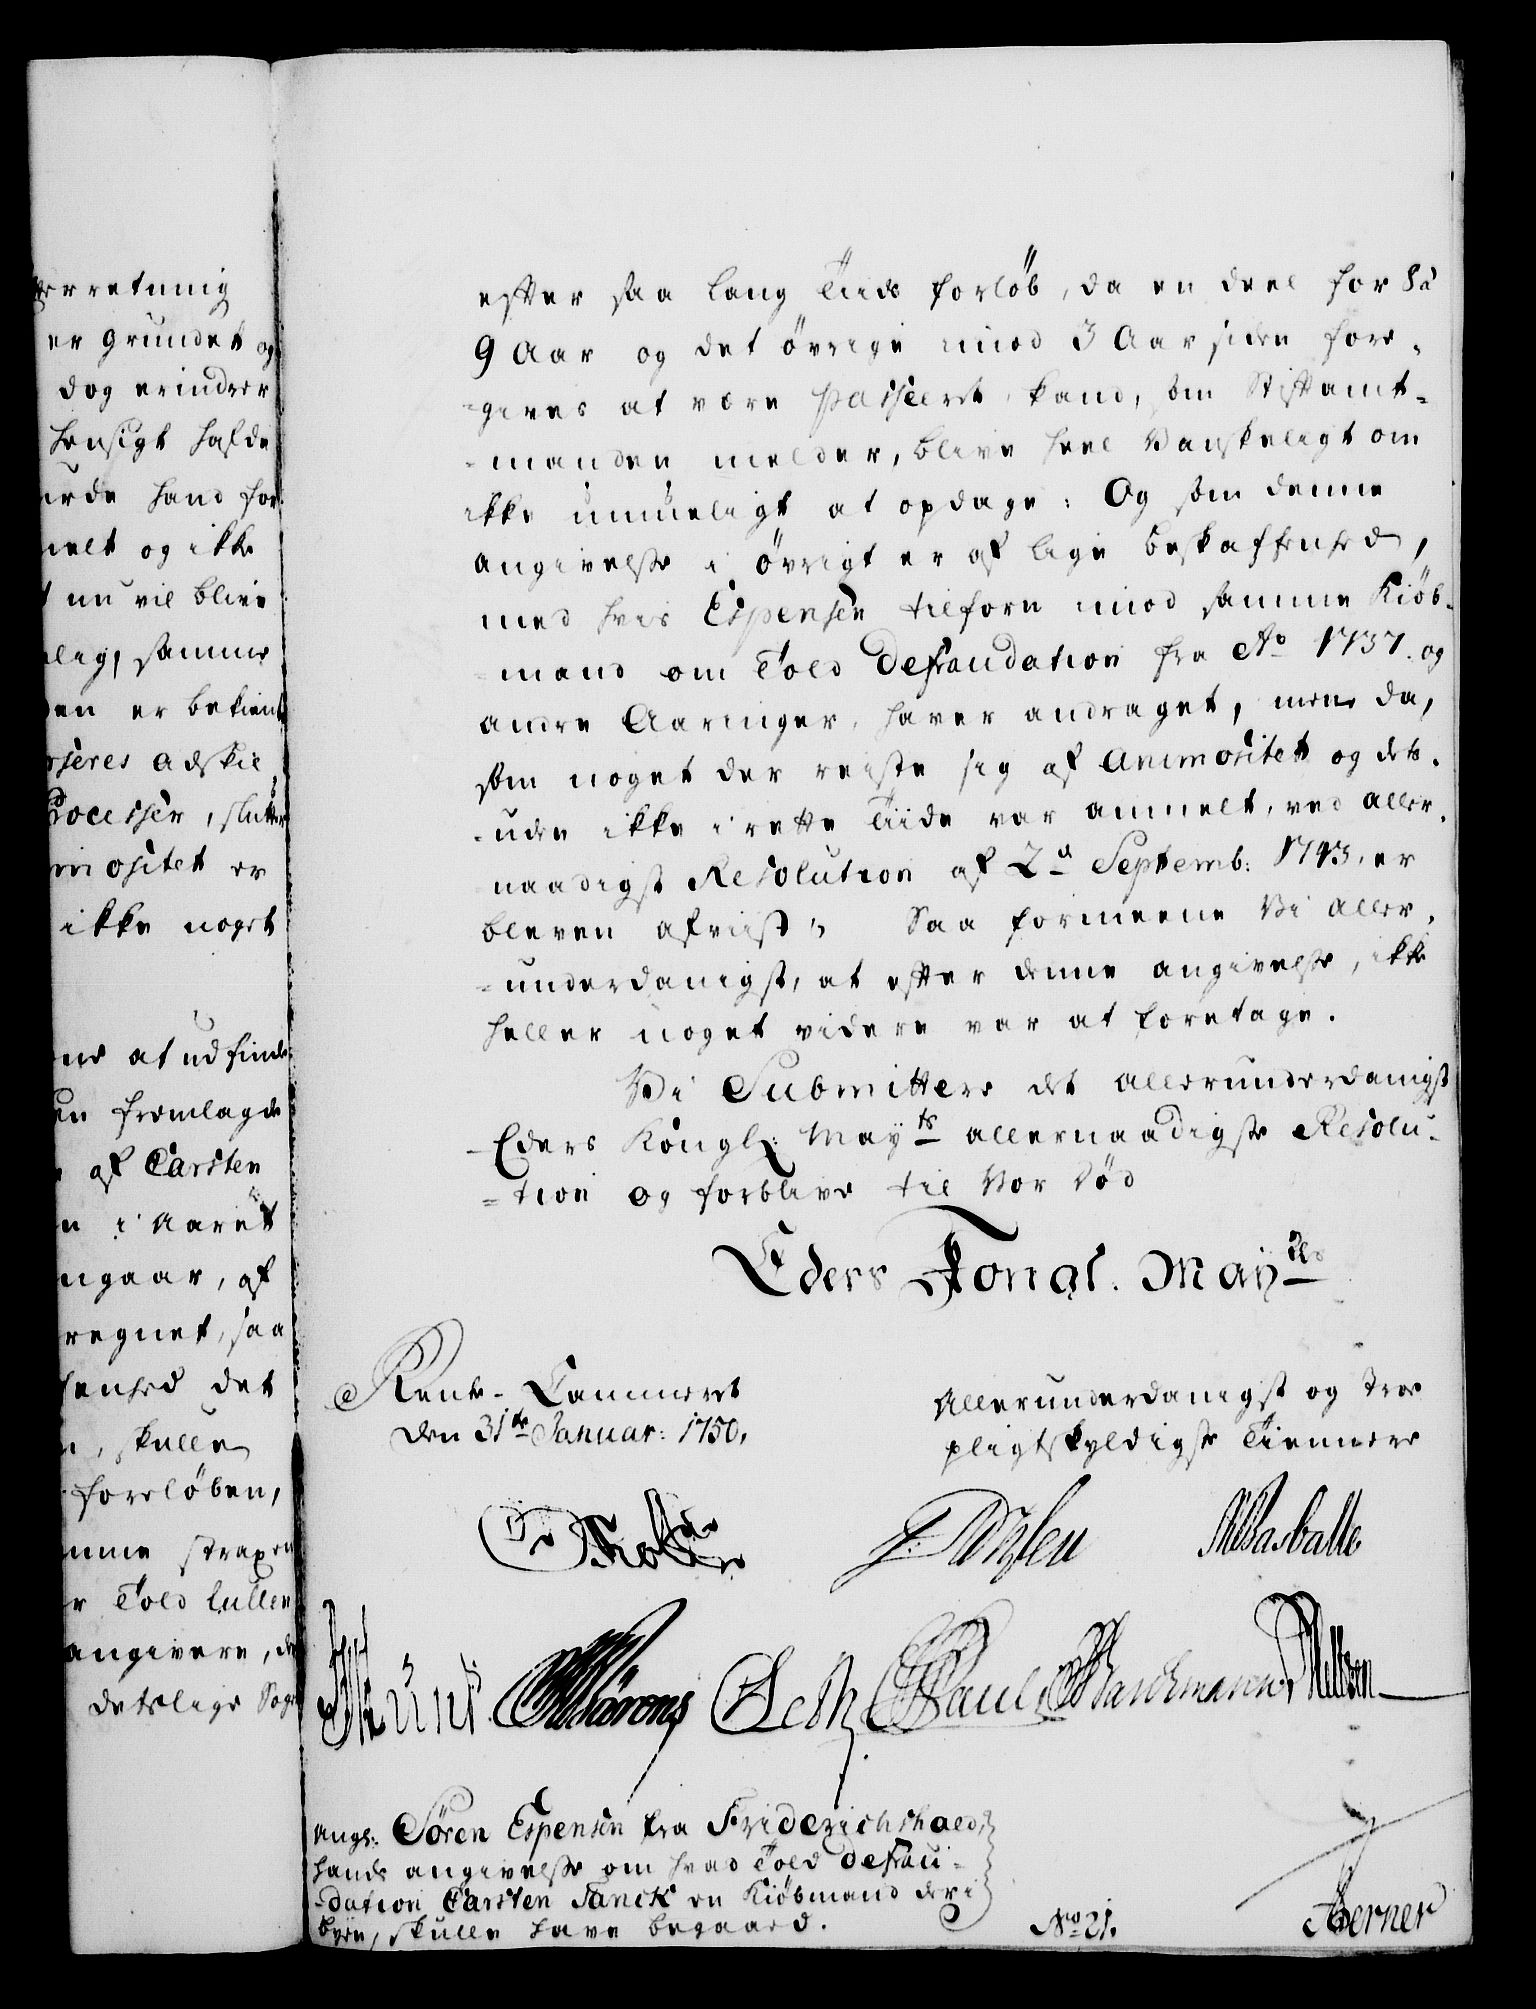 erretning
er grundet og
dog erindrer
hensigt hafde
urde hand for
melt og ikke
nu vil blive
lig, samme
den er bekient
adskil
Processer, slutter
mositet er
ikke noget
at udfinde
fremlagde
af Carsten
i Aaret
ngaar, af
regnet, saa
det
, skulle
forløben,
strax en
r Told Cullen
angivere, de
detslige Sag
efter saa lang Tiids forløb, da en deel for 8 à
9 Aar og det øvrige imod 3 Aar siden fore-
-gives at være passeret, kand, som Stiftamt-
-manden melder, blive heel Vanskeligt om
ikke umueligt at opdage: Og som denne
angivelse i øvrigt er af lige beskaffenhed,
med hvis Espensen tilforn imod samme Kiøb-
-mand om Told Defraudation fra Ao 1737. og
andre Aaringer, haver andraget, men da,
som noget der reiste sig af Animositet og des-
-uden ikke i rette Tiide var anmelt, ved aller-
naadigst Resolution af 2d Septemb: 1743. er
bleven afviist; Saa formeene Vi aller-
-underdanigst, at efter denne angivelse, ikke
heller noget videre var at foretage.
Vi Submittere det allerunderdanigst
Eders Kongl: Mayts allernaadigste Resolu-
-tion og forblive til Vor Død
Eders Kongl. Mayts
Rente-Cammeret
den 31te Januar: 1750.
Allerunderdanigst og troe
pligtskyldigste Tiennere
Holst
Rasballe
Pauli Barchmann Nielsen
Ang: Søren Espensen fra Friderichshald,
hands angivelse om hvad Told defrau-
-dation Carsten Tanck en Kiøbmand der i
byen, skulle have begaaed.
No 21.
Berner